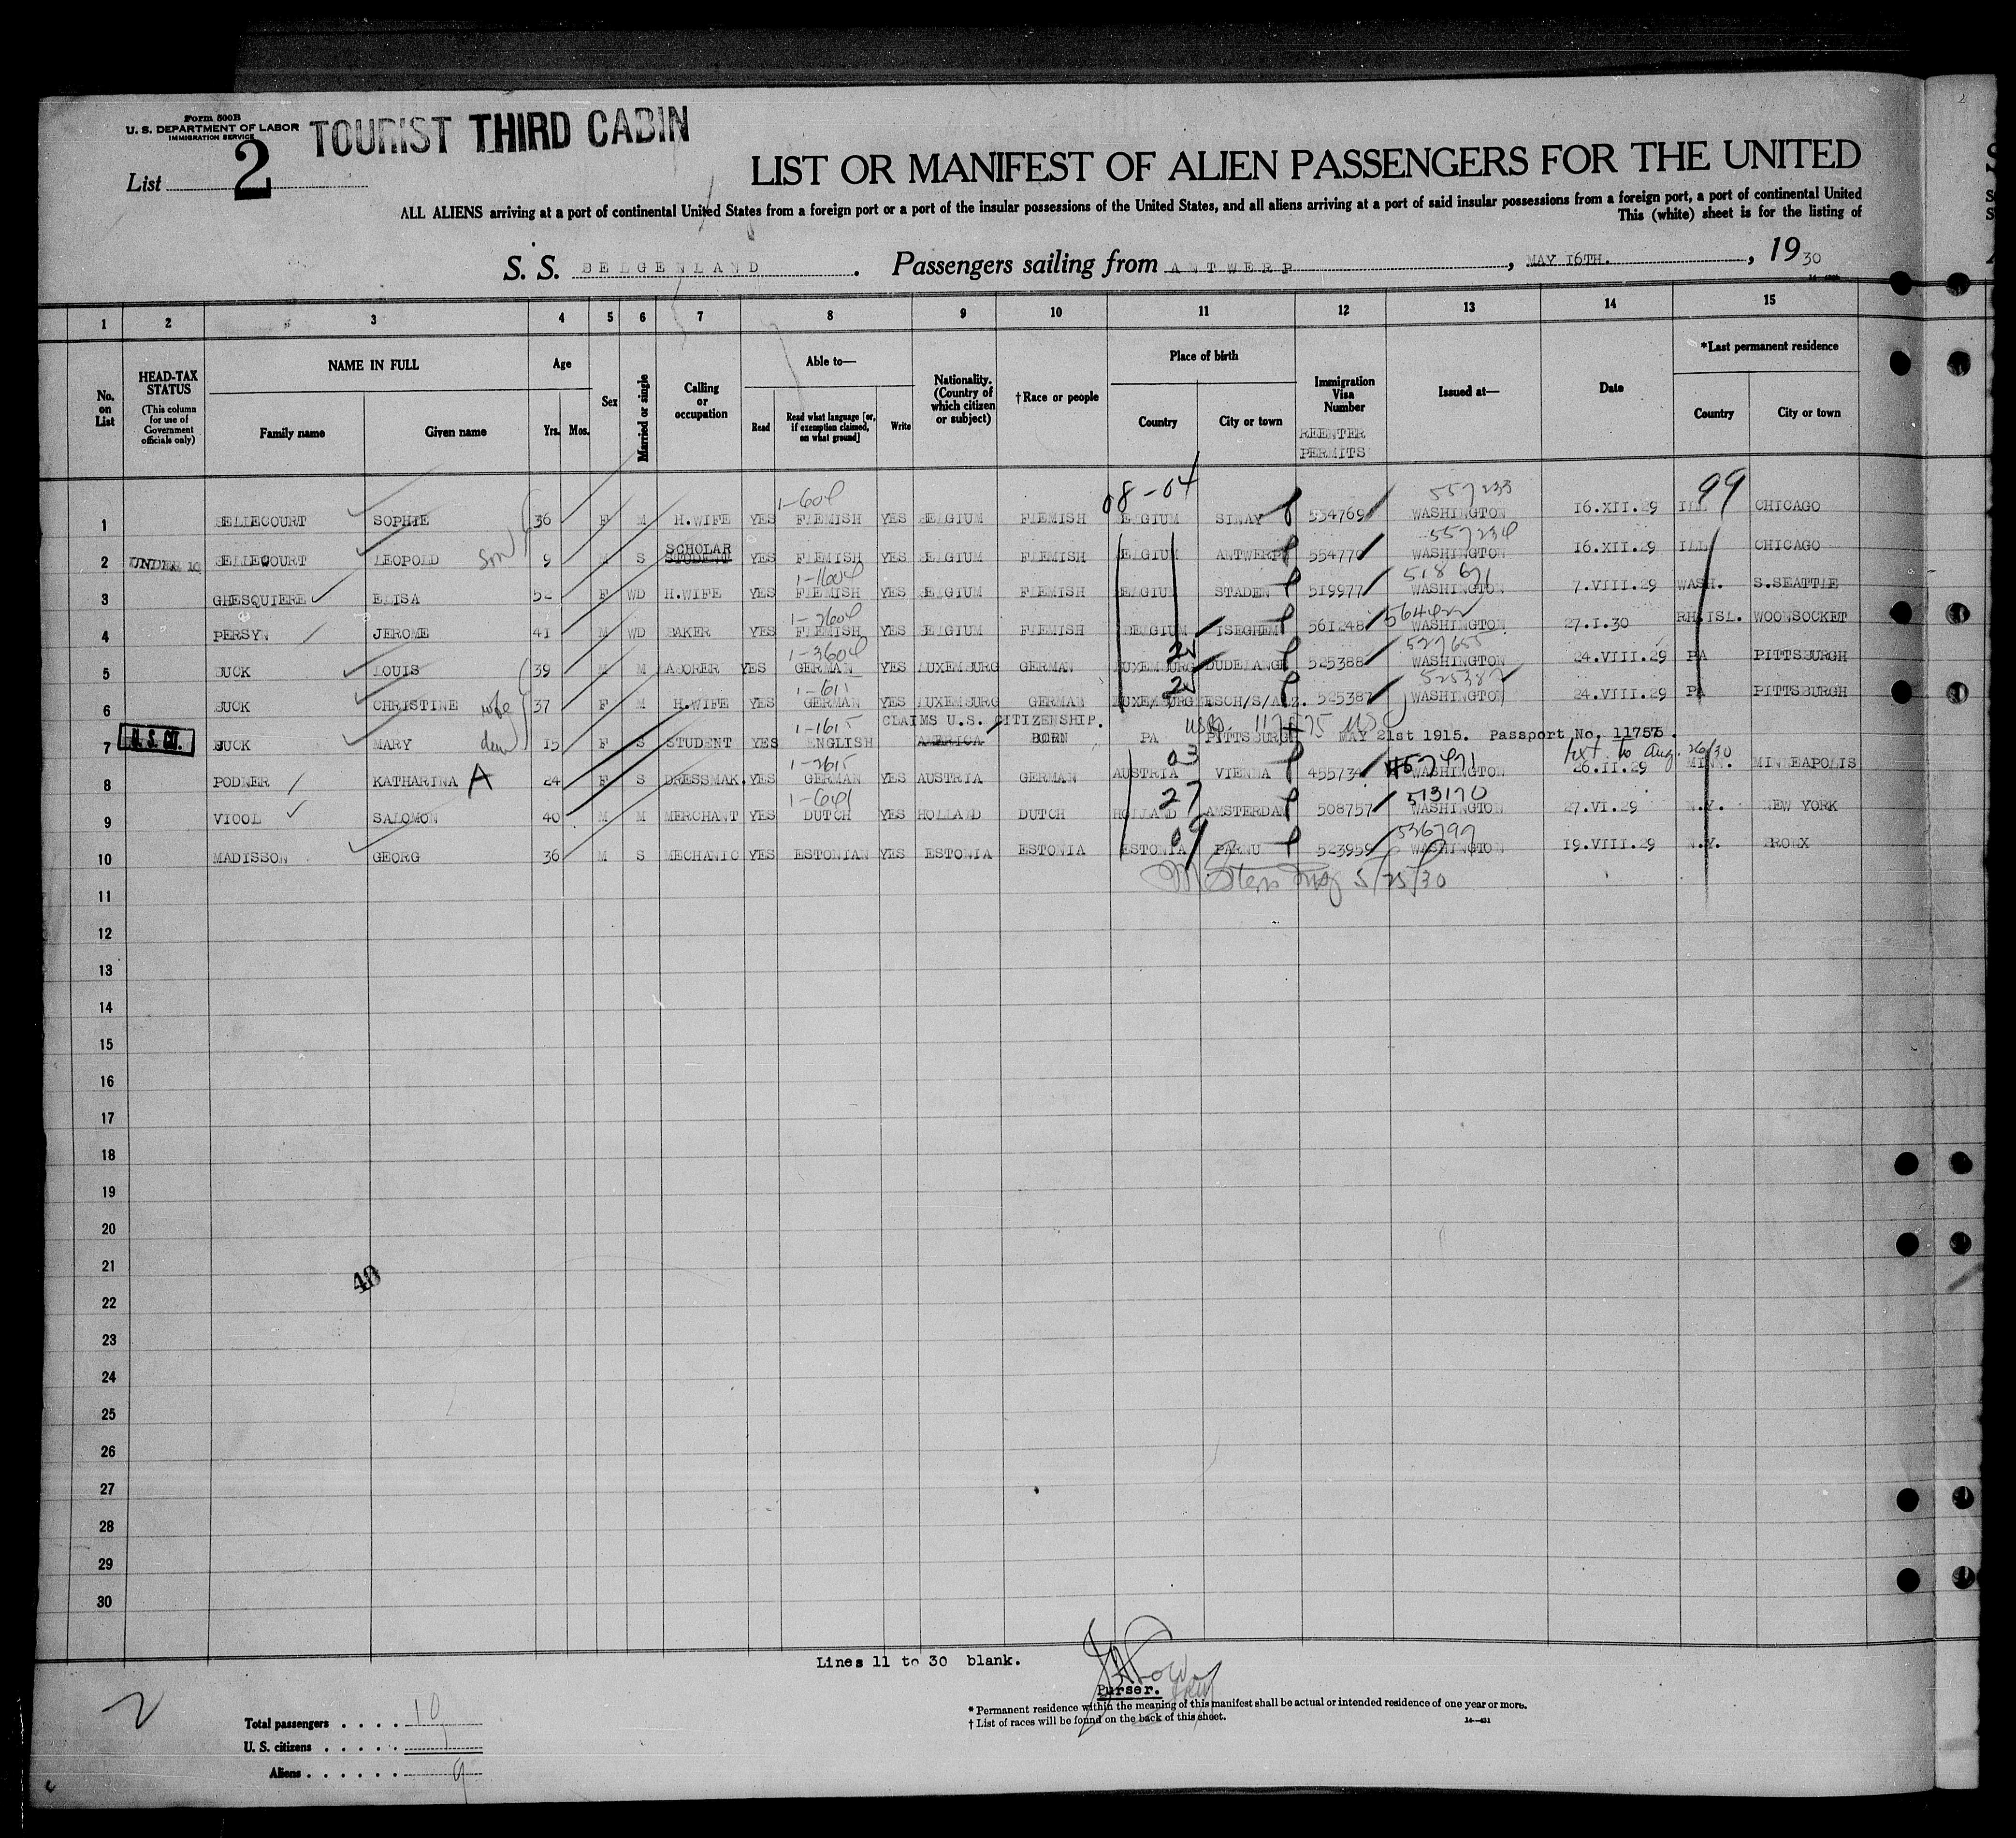 Form 500B
U. S. DEPARTMENT OF LABOR
IMMIGRATION SERVICE
TOURIST THIRD CABIN
List 2
LIST OR MANIFEST OF ALIEN PASSENGERS FOR THE UNITED
ALL ALIENS arriving at a port of continental United States from a foreign port or a port of the insular possessions of the United States, and all aliens arriving at a port of said insular possessions from a foreign port, a port of continental United
This (white) sheet is for the listing of
S. S. BELGENLAND . Passengers sailing from ANTWERP , MAY 16TH. , 1930
1 2 3 4 5 6 7 8 9 10 11 12 13 14 15
No. on List
HEAD-TAX STATUS (This column for use of Government officials only)
NAME IN FULL Family name Given name
Age Yrs. Mos.
Sex
Married or single
Calling or occupation
Able to— Read Read what language [or, if exemption claimed, on what ground] Write
Nationality. (Country of which citizen or subject)
†Race or people
Place of birth Country City or town
Immigration Visa Number REENTER PERMITS
Issued at—
Date
*Last permanent residence Country City or town
1-604 08-04 557233 99
1 BELLECOURT SOPHIE 36 F M H.WIFE YES FLEMISH YES BELGIUM FLEMISH BELGIUM SINAY 554769 WASHINGTON 16.XII.29 ILL CHICAGO
SCHOLAR 557234
2 UNDER 10 BELLECOURT LEOPOLD son 9 M S STUDENT YES FLEMISH YES BELGIUM FLEMISH BELGIUM ANTWERP 554770 WASHINGTON 16.XII.29 ILL CHICAGO
1-1604 518671
3 GHESQUIERE ELISA 52 F WD H.WIFE YES FLEMISH YES BELGIUM FLEMISH BELGIUM STADEN 519977 WASHINGTON 7.VIII.29 WASH. S.SEATTLE
1-2604 564422
4 PERSYN JEROME 41 M WD BAKER YES FLEMISH YES BELGIUM FLEMISH BELGIUM ISEGHEM 561248 WASHINGTON 27.I.30 RH.ISL. WOONSOCKET
1-3604 25 527655
5 BUCK LOUIS 39 M M LABORER YES GERMAN YES LUXEMBURG GERMAN LUXEMBURG DUDELANGE 525388 WASHINGTON 24.VIII.29 PA PITTSBURGH
1-611 25 525382
6 BUCK CHRISTINE wife 37 F M H.WIFE YES GERMAN YES LUXEMBURG GERMAN LUXEMBURG ESCH/S/ALZ. 525387 WASHINGTON 24.VIII.29 PA PITTSBURGH
1-1615 CLAIMS U.S. CITIZENSHIP.
7 U.S. CIT. BUCK MARY 15 F S STUDENT YES ENGLISH AMERICA BORN PA PITTSBURGH MAY 21st 1915. Passport No. 11756.
1-2615 03 457471 ext. to Aug. 26/30
8 PODNER KATHARINA A 24 F S DRESSMAK. YES GERMAN YES AUSTRIA GERMAN AUSTRIA VIENNA 455734 WASHINGTON 26.II.29 MINN. MINNEAPOLIS
1-641 27 513170
9 VIOOL SALOMON 40 M M MERCHANT YES DUTCH YES HOLLAND DUTCH HOLLAND AMSTERDAM 508757 WASHINGTON 27.VI.29 N.Y. NEW YORK
09 536797
10 MADISSON GEORG 36 M S MECHANIC YES ESTONIAN YES ESTONIA ESTONIA ESTONIA PARNU 523959 WASHINGTON 19.VIII.29 N.Y. BRONX
5/25/30
11
12
13
14
15
16
17
18
19
20
21
40
22
23
24
25
26
27
28
29
30
Lines 11 to 30 blank.
Purser.
* Permanent residence within the meaning of this manifest shall be actual or intended residence of one year or more.
† List of races will be found on the back of this sheet.
2
Total passengers . . . . 10
U. S. citizens . . . . . 1
Aliens . . . . . . 9